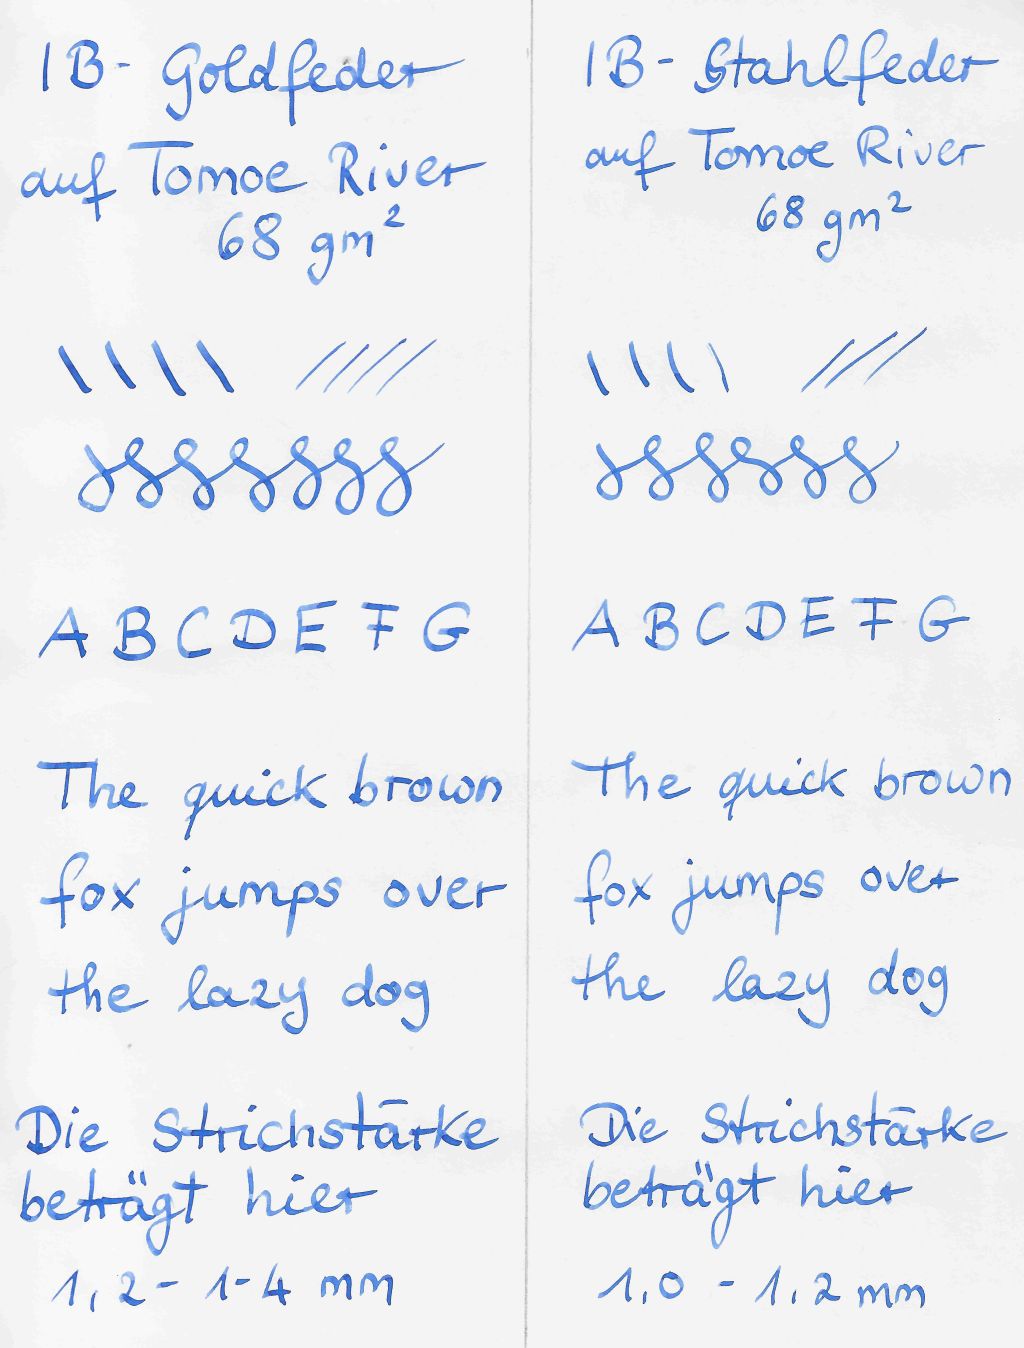 IB- Goldfeder
auf Tomoe River
68 gm²
A B C D E F G
The quick brown
fox jumps over
the lazy dog
Die Strichstärke
beträgt hier
1,2 - 1-4 mm
IB- Stahlfeder
auf Tomoe River
68 gm²
A B C D E F G
The quick brown
fox jumps over
the lazy dog
Die Strichstärke
beträgt hier
1,0 - 1,2 mm